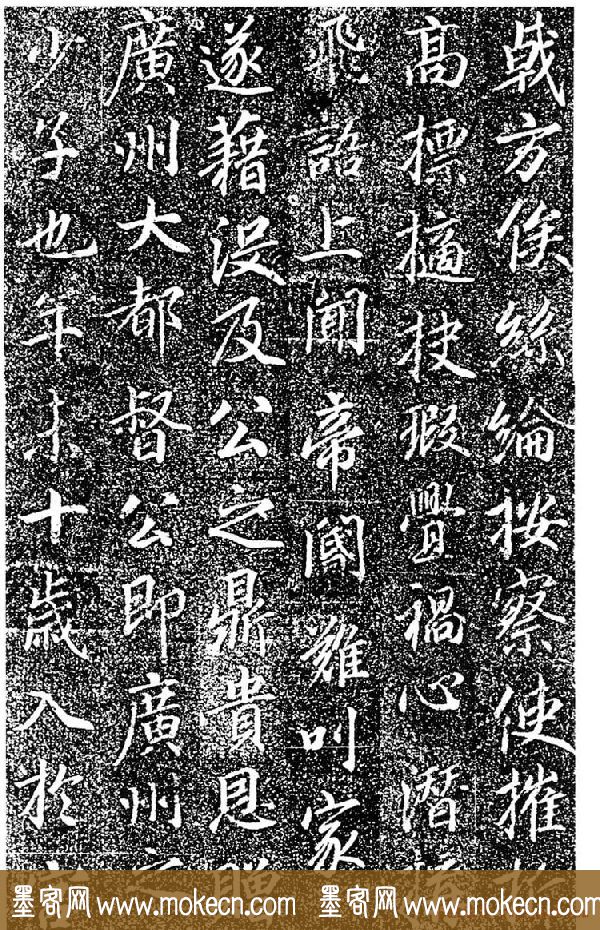 戟方俟絲綸按察使摧
高標擿抉瑕舋禍心潛
飛語上聞帝閽難叫家
遂藉沒及公之鼎貴恩贈
廣州大都督公即廣州之
少子也年未十歲入於
墨客网 www.mokecn.com 墨客网 www.mokecn.com